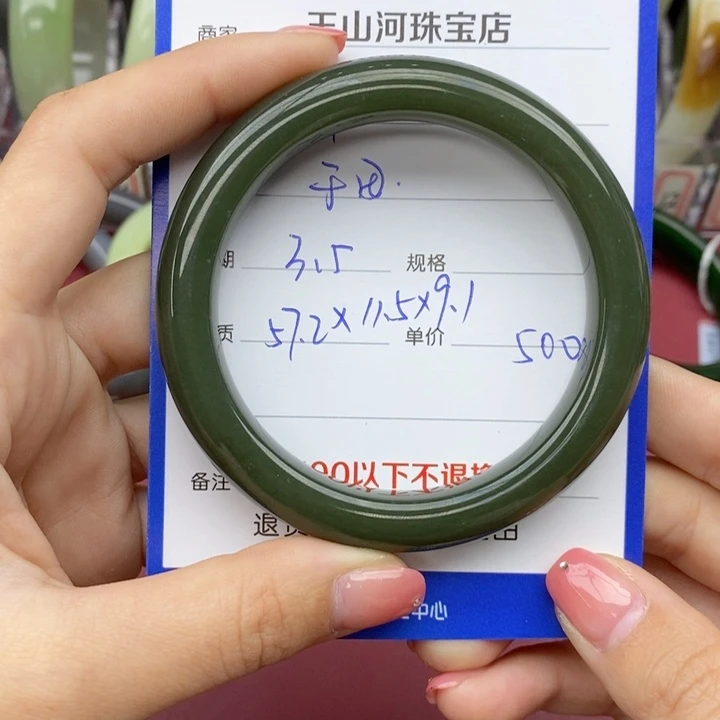 商家 玉山河珠宝店
于田.
期 3.5 规格
质 57.2×11.5×9.1 单价 500
备注 00以下不退换
退
中心